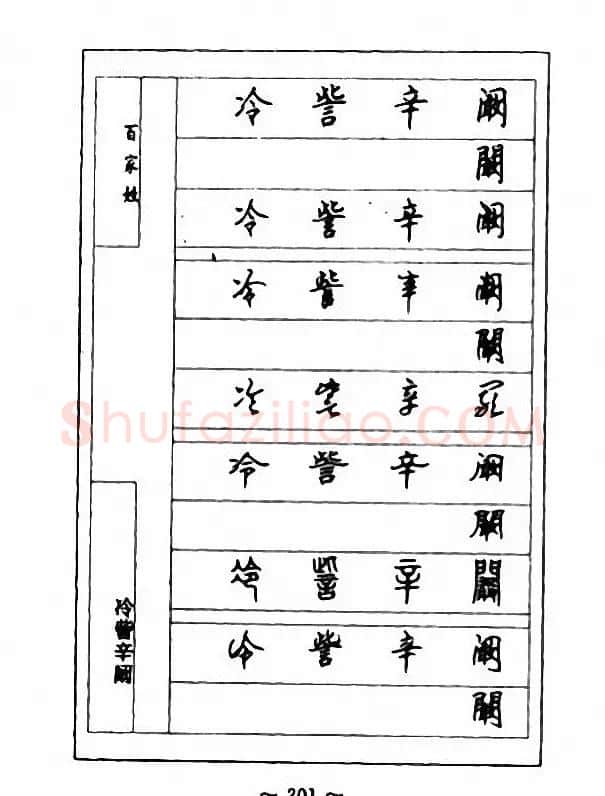 百家姓
冷 訾 辛 阚
闞
冷 訾 辛 阚
冷 訾 辛 阚
闞
冷 訾 辛 阚
冷 訾 辛 阚
闞
冷 訾 辛 闞
冷 訾 辛 阚
闞
冷訾辛阚
Shufaziliao.COM
～ 201 ～